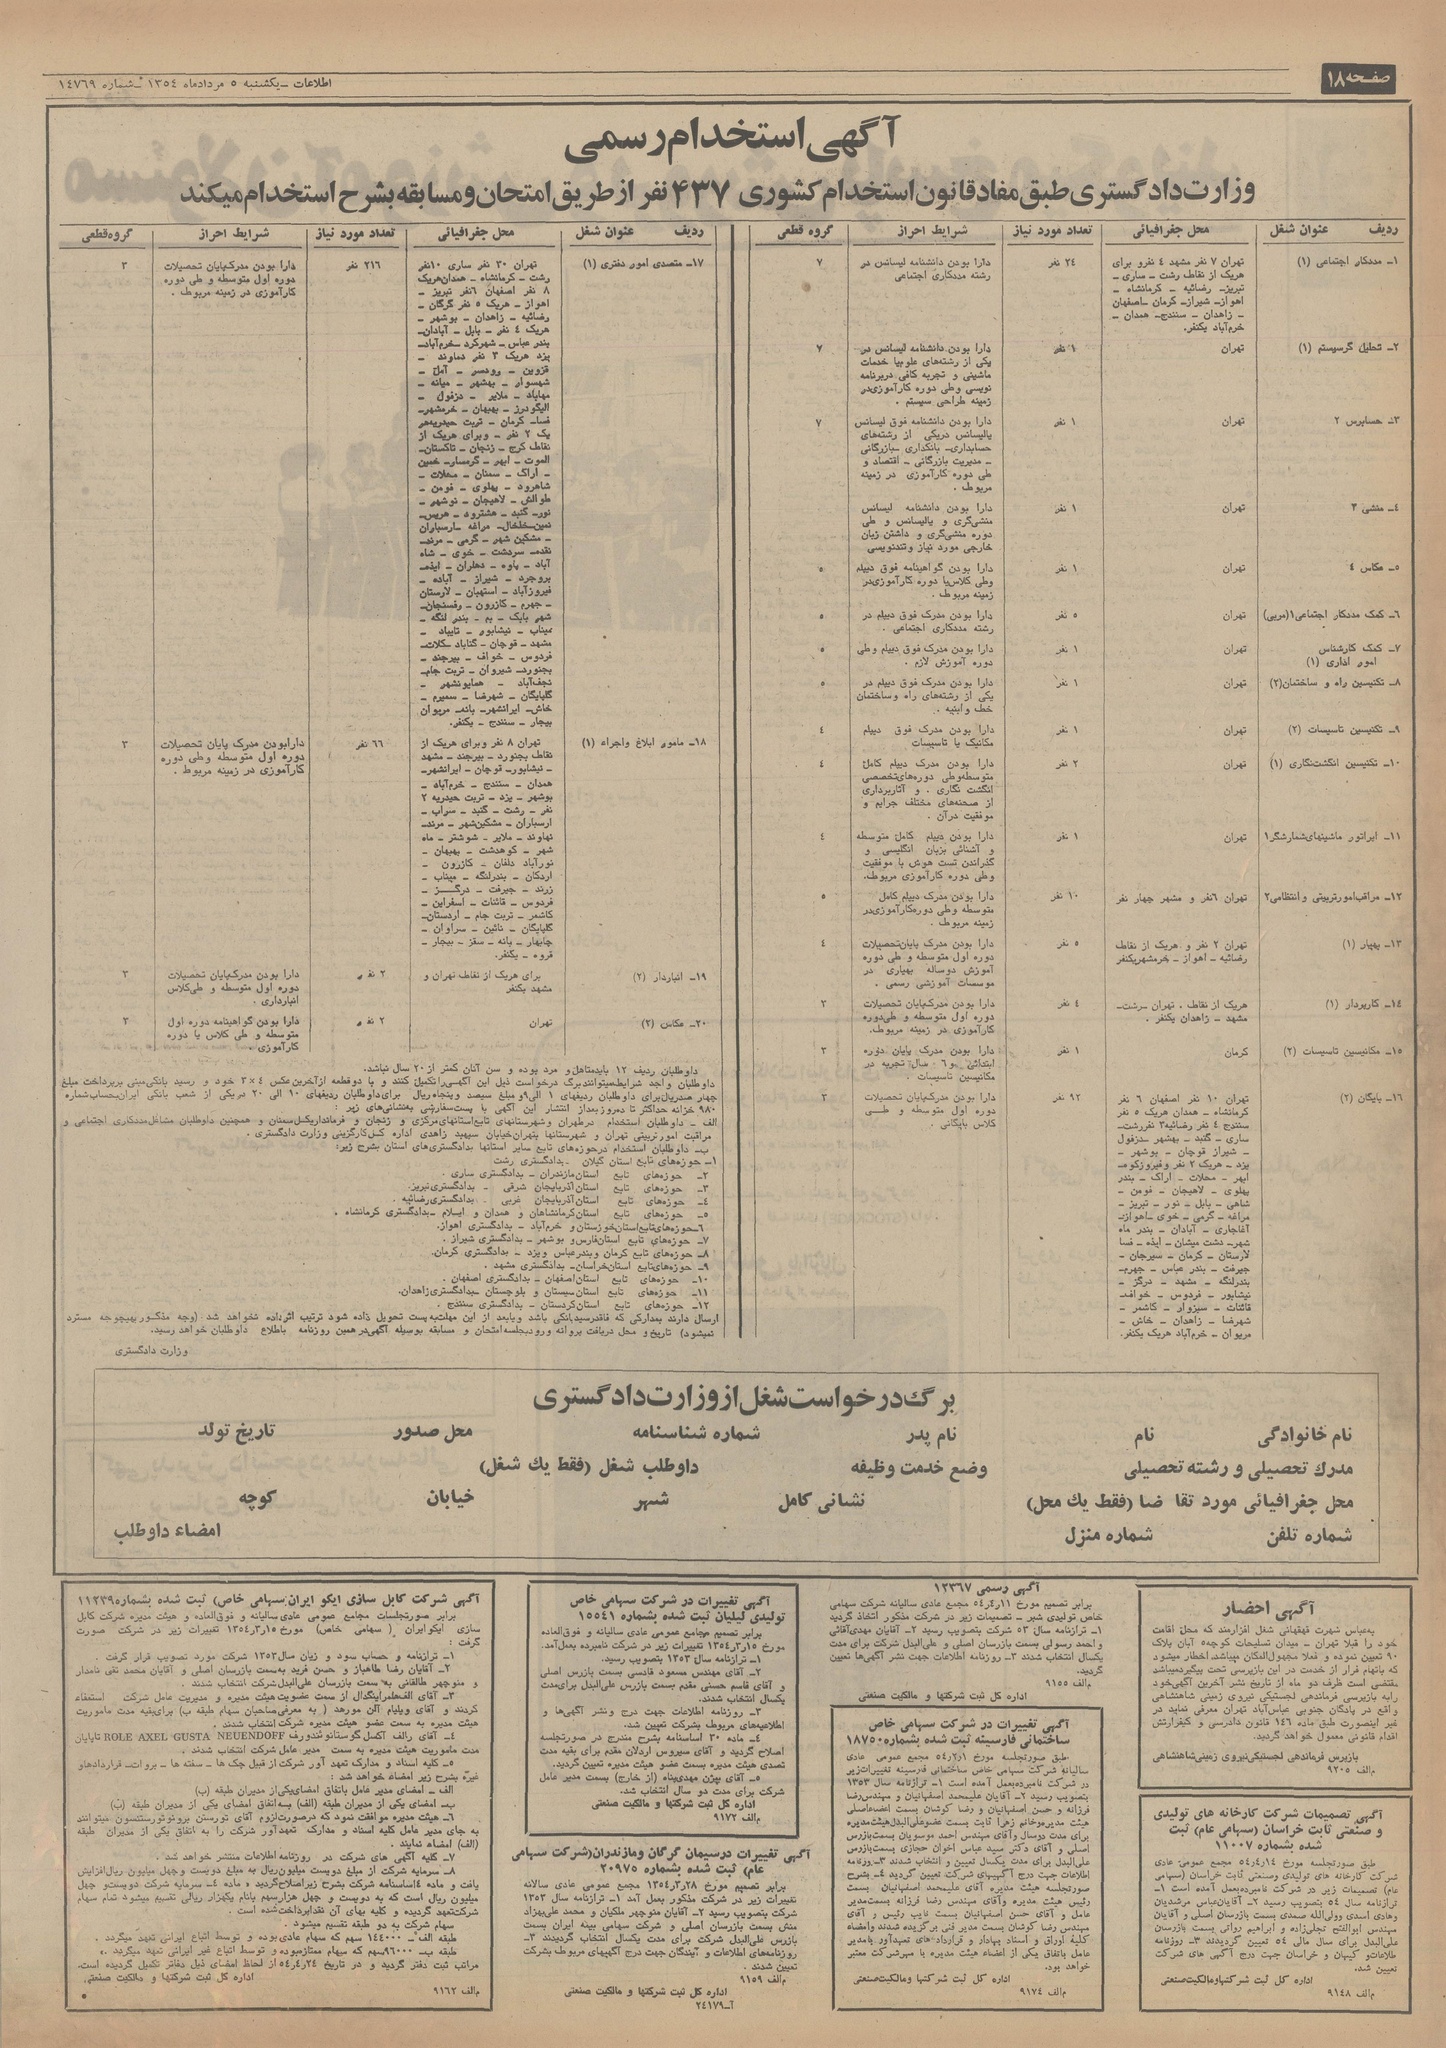 صفحه ۱۸
اطلاعات ـ یکشنبه ۵ مردادماه ۱۳۵۴ ـ شماره ۱۴۷۶۹
آگهی استخدام رسمی
وزارت دادگستری طبق مفاد قانون استخدام کشوری ۴۳۷ نفر از طریق امتحان و مسابقه بشرح استخدام میکند
ردیف عنوان شغل محل جغرافیائی تعداد مورد نیاز شرایط احراز گروه قطعی
۱ـ مددکار اجتماعی (۱)
تهران ۷ نفر مشهد ۴ نفر و برای
هریک از نقاط رشت ـ ساری ـ
تبریز ـ رضائیه ـ کرمانشاه ـ
اهواز ـ شیراز ـ کرمان ـ اصفهان
ـ زاهدان ـ سنندج ـ همدان ـ
خرم‌آباد یکنفر.
۲۴ نفر
دارا بودن دانشنامه لیسانس در
رشته مددکاری اجتماعی
۷
۲ـ تحلیل گر سیستم (۱)
تهران
۱ نفر
دارا بودن دانشنامه لیسانس در
یکی از رشته‌های علوم یا خدمات
ماشینی و تجربه کافی در برنامه
نویسی وطی دوره کارآموزی در
زمینه طراحی سیستم .
۷
۳ـ حسابرس ۲
تهران
۱ نفر
دارا بودن دانشنامه فوق لیسانس
یالیسانس دریکی از رشته‌های
حسابداری ـ بانکداری ـ بازرگانی
ـ مدیریت بازرگانی ـ اقتصاد و
طی دوره کارآموزی در زمینه
مربوط .
۷
۴ـ منشی ۳
تهران
۱ نفر
دارا بودن دانشنامه لیسانس
منشی‌گری و یالیسانس و طی
دوره منشی‌گری و داشتن زبان
خارجی مورد نیاز وتندنویسی
۵ـ عکاس ۴
تهران
۱ نفر
دارا بودن گواهینامه فوق دیپلم
وطی کلاس یا دوره کارآموزی در
زمینه مربوط .
۵
۶ـ کمک مددکار اجتماعی ۱(مربی)
تهران
۵ نفر
دارا بودن مدرک فوق دیپلم در
رشته مددکاری اجتماعی .
۵
۷ـ کمک کارشناس
امور اداری (۱)
تهران
۱ نفر
دارا بودن مدرک فوق دیپلم وطی
دوره آموزش لازم .
۵
۸ـ تکنیسین راه و ساختمان(۲)
تهران
۱ نفر
دارا بودن مدرک فوق دیپلم در
یکی از رشته‌های راه وساختمان
خط وابنیه .
۵
۹ـ تکنیسین تاسیسات (۲)
تهران
۱ نفر
دارا بودن مدرک فوق دیپلم
مکانیک یا تاسیسات
۴
۱۰ـ تکنیسین انگشت‌نگاری (۱)
تهران
۲ نفر
دارا بودن مدرک دیپلم کامل
متوسطه‌وطی دوره‌های‌تخصصی
انگشت نگاری . و آثاربرداری
از صحنه‌های مختلف جرایم و
موفقیت درآن .
۴
۱۱ـ اپراتور ماشینهای شمارشگر۱
تهران
۱ نفر
دارا بودن دیپلم کامل متوسطه
و آشنائی بزبان انگلیسی و
گذراندن تست هوش با موفقیت
وطی دوره کارآموزی مربوط.
۴
۱۲ـ مراقب‌امور تربیتی و انتظامی۲
تهران ۶نفر و مشهر چهار نفر
۱۰ نفر
دارا بودن مدرک دیپلم کامل
متوسطه وطی دوره‌کارآموزی‌در
زمینه مربوط .
۵
۱۳ـ بهیار (۱)
تهران ۲ نفر و هریک از نقاط
رضائیه ـ اهواز ـ خرمشهریکنفر
۵ نفر
دارا بودن مدرک پایان‌تحصیلات
دوره اول متوسطه و طی دوره
آموزش دوساله بهیاری در
موسسات آموزشی رسمی .
۴
۱۴ـ کارپرداز (۱)
هریک از نقاط . تهران ـ رشت ـ
مشهد ـ زاهدان یکنفر .
۴ نفر
دارا بودن مدرک‌پایان تحصیلات
دوره اول متوسطه و طی‌دوره
کارآموزی در زمینه مربوط.
۱۵ـ مکانیسین تاسیسات (۲)
کرمان
۱ نفر
دارا بودن مدرک پایان دوره
ابتدائی و ۶ سال تجربه در
مکانیسین تاسیسات .
۳
۱۶ـ بایگان (۲)
تهران ۱۰ نفر اصفهان ۶ نفر
کرمانشاه ـ همدان هریک ۵ نفر
سنندج ۴ نفر رضائیه۳ نفررشت ـ
ساری ـ گنبد ـ بهشهر ـ دزفول
ـ شیراز قوچان ـ بوشهر ـ
یزد ـ هریک ۲ نفر وفیروزکوه ـ
ابهر ـ محلات ـ اراک ـ بندر
پهلوی ـ لاهیجان ـ فومن ـ
شاهی ـ بابل ـ نور ـ تبریز ـ
مراغه ـ گرمی ـ خوی ـ اهواز ـ
آغاجاری ـ آبادان ـ بندر ماه
شهر ـ دشت میشان ـ ایذه ـ فسا
لارستان ـ کرمان ـ سیرجان ـ
جیرفت ـ بندر عباس ـ جهرم ـ
بندرلنگه ـ مشهد ـ درگز ـ
نیشابور ـ فردوس ـ خواف ـ
قائنات ـ سبزوار ـ کاشمر ـ
شهرضا ـ زاهدان ـ خاش ـ
مریوان ـ خرم‌آباد هریک یکنفر.
۹۲ نفر
دارا بودن مدرک‌پایان تحصیلات
دوره اول متوسطه و طــی
کلاس بایگانی .
۳
ردیف عنوان شغل محل جغرافیائی تعداد مورد نیاز شرایط احراز گروه قطعی
۱۷ـ متصدی امور دفتری (۱)
تهران ۳۰ نفر ساری ۱۰نفر
رشت ـ کرمانشاه ـ همدان‌هریک
۸ نفر اصفهان ۶نفر تبریز ـ
اهواز ـ هریک ۵ نفر گرگان ـ
رضائیه ـ زاهدان ـ بوشهر ـ
هریک ۴ نفر ـ بابل ـ آبادان ـ
بندر عباس ـ شهرکرد ـ خرم‌آباد ـ
یزد هریک ۳ نفر دماوند ـ
قزوین ـ رودسر ـ آمل ـ
شهسوار ـ بهشهر ـ میانه ـ
مهاباد ـ ملایر ـ دزفول ـ
الیگودرز ـ بهبهان ـ خرمشهر ـ
فسا ـ کرمان ـ تربت حیدریه‌هر
یک ۲ نفر ـ وبرای هریک از
نقاط کرج ـ زنجان ـ تاکستان ـ
الموت ـ ابهر ـ گرمسار ـ خمین
ـ اراک ـ سمنان ـ محلات ـ
شاهرود ـ پهلوی ـ فومن ـ
طوالش ـ لاهیجان ـ نوشهر ـ
نور ـ گنبد ـ هشترود ـ هریس ـ
نمین ـ خلخال ـ مراغه ـ ارسباران
ـ مشکین شهر ـ گرمی ـ مرند ـ
نقده ـ سردشت ـ خوی ـ شاه
آباد ـ پاوه ـ دهلران ـ ایذه ـ
بروجرد ـ شیراز ـ آباده ـ
فیروزآباد ـ استهبان ـ لارستان
ـ جهرم ـ کازرون ـ رفسنجان ـ
شهر بابک ـ بم ـ بندر لنگه ـ
میناب ـ نیشابور ـ تایباد ـ
مشهد ـ قوچان ـ گناباد ـ کلات ـ
فردوس ـ خواف ـ بیرجند ـ
بجنورد ـ شیروان ـ تربت جام ـ
نجف‌آباد ـ همایونشهر ـ
گلپایگان ـ شهرضا ـ سمیرم ـ
خاش ـ ایرانشهر ـ بانه ـ مریوان
بیجار ـ سنندج ـ یکنفر.
۲۱۶ نفر
دارا بودن مدرک‌پایان تحصیلات
دوره اول متوسطه و طی دوره
کارآموزی در زمینه مربوط .
۳
۱۸ـ مامور ابلاغ واجراء (۱)
تهران ۸ نفر وبرای هریک از
نقاط بجنورد ـ بیرجند ـ مشهد
ـ نیشابور ـ قوچان ـ ایرانشهر ـ
همدان ـ سنندج ـ خرم‌آباد ـ
بوشهر ـ یزد ـ تربت حیدریه ۲
نفر ـ رشت ـ گنبد ـ سراب ـ
ارسباران ـ مشکین‌شهر ـ مرند ـ
نهاوند ـ ملایر ـ شوشتر ـ ماه
شهر ـ کوهدشت ـ بهبهان ـ
نورآباد دلفان ـ کازرون ـ
اردکان ـ بندرلنگه ـ میناب ـ
زرند ـ جیرفت ـ درگــز ـ
فردوس ـ قائنات ـ اسفراین ـ
کاشمر ـ تربت جام ـ اردستان ـ
گلپایگان ـ نائین ـ سراوان ـ
چابهار ـ بانه ـ سقز ـ بیجار ـ
قروه ـ یکنفر.
۶۶ نفر
دارابودن مدرک پایان تحصیلات
دوره اول متوسطه وطی دوره
کارآموزی در زمینه مربوط .
۳
۱۹ـ انباردار (۲)
برای هریک از نقاط تهران و
مشهد یکنفر
۲ نفر
دارا بودن مدرک‌پایان تحصیلات
دوره اول متوسطه و طی‌کلاس
انبارداری .
۳
۲۰ـ عکاس (۲)
تهران
۲ نفر
دارا بودن گواهینامه دوره اول
متوسطه و طی کلاس یا دوره
کارآموزی .
۳
داوطلبان ردیف ۱۲ بایدمتاهل‌و مرد بوده و سن آنان کمتر از ۲۰ سال نباشد.
داوطلبان واجد شرایط‌میتوانند برگ درخواست ذیل این آگهی‌راتکمیل کنند و با دوقطعه ازآخرین‌عکس ۴×۳ خود و رسید بانکی‌مبنی برپرداخت مبلغ
چهار صدریال‌برای داوطلبان ردیفهای ۱ الی۹و مبلغ سیصد وپنجاه‌ریال برای‌داوطلبان ردیفهای ۱۰ الی ۲۰ دریکی از شعب بانکی ایران‌بحساب‌شماره
۹۸۰ خزانه حداکثر تا ده‌روز بعداز انتشار این آگهی با پست سفارشی بنشانی‌های زیر :
الف ـ داوطلبان استخدام درطهران وشهرستانهای تابع‌استانهای‌مرکزی و زنجان و فرمانداریکل‌سمنان و همچنین داوطلبان مشاغل‌مددکاری اجتماعی و
مراقبت امورتربیتی تهران و شهرستانها بتهران‌خیابان سپهبد زاهدی اداره کل‌کارگزینی وزارت دادگستری .
ب ـ داوطلبان استخدام درحوزه‌های تابع سایر استانها بدادگستری‌های استان بشرح زیر:
۱ـ حوزه‌های تابع استان گیلان ـ بدادگستری رشت
۲ـ حوزه‌های تابع استان‌مازندران ـ بدادگستری ساری .
۳ـ حوزه‌های تابع استان‌آذربایجان شرقی . بدادگستری‌تبریز.
۴ـ حوزه‌های تابع استان‌آذربایجان غربی . بدادگستری‌رضائیه .
۵ـ حوزه‌های تابع استان‌کرمانشاهان و همدان و ایلام ـ بدادگستری کرمانشاه .
۶ـ حوزه‌های‌تابع‌استان‌خوزستان‌و خرم‌آباد ـ بدادگستری اهواز.
۷ـ حوزه‌های تابع استان‌فارس‌و بوشهر ـ بدادگستری شیراز .
۸ـ حوزه‌های تابع کرمان وبندرعباس ویزد ـ بدادگستری کرمان.
۹ـ حوزه‌های تابع استان‌خراسان ـ بدادگستری مشهد .
۱۰ـ حوزه‌های تابع استان‌اصفهان ـ بدادگستری اصفهان .
۱۱ـ حوزه‌های تابع استان‌سیستان و بلوچستان ـ بدادگستری‌زاهدان.
۱۲ـ حوزه‌های تابع استان‌کردستان ـ بدادگستری سنندج .
ارسال دارند بمدارکی که فاقدرسیدبانکی باشد ویابعد از این مهلت‌به‌پست تحویل داده شود ترتیب اثرداده نخواهد شد (وجه مذکور بهیچوجه مسترد
نمیشود) تاریخ‌و محل دریافت پروانه ورودبجلسه‌امتحان و مسابقه بوسیله آگهی‌درهمین روزنامه باطلاع داوطلبان خواهد رسید.
وزارت دادگستری
برگ درخواست شغل از وزارت دادگستری
نام خانوادگی نام نام پدر شماره شناسنامه محل صدور تاریخ تولد
مدرک تحصیلی و رشته تحصیلی وضع خدمت وظیفه داوطلب شغل (فقط یك شغل)
محل جغرافیائی مورد تقاضا (فقط یك محل) نشانی کامل شهر خیابان کوچه
شماره تلفن شماره منزل امضاء داوطلب
آگهی احضار
به‌عباس شهرت قهقهائی شغل افزارمند که محل اقامت
خود را قبلا تهران ـ میدان تسلیحات کوچه‌ده آبان پلاک
۹۰ تعیین نموده و فعلا مجهول‌المکان میباشد اخطار میشود
که باتهام فرار از خدمت در این بازپرسی تحت پیگیردمیباشد
مقتضی است ظرف دو ماه از تاریخ نشر آخرین آگهی‌خود
رابه بازپرسی فرماندهی لجستیکی نیروی زمینی شاهنشاهی
واقع در پادگان جنوبی عباس‌آباد تهران معرفی نماید در
غیر اینصورت طبق ماده ۱۴۶ قانون دادرسی و کیفرارتش
اقدام قانونی معمول خواهد گردید.
بازپرس فرماندهی لجستیکی‌نیروی زمینی‌شاهنشاهی
م‌الف ۹۲۰۵
آگهی تصمیمات شرکت کارخانه های تولیدی
و صنعتی ثابت خراسان (سهامی عام) ثبت
شده بشماره ۱۱۰۰۷
طبق صورتجلسه مورخ ۵۴٫۴٫۱۴ مجمع عمومی عادی
شرکت کارخانه های تولیدی وصنعتی ثابت خراسان (سهامی
عام) تصمیمات زیر در شرکت نامبرده‌بعمل آمده است ۱ـ
ترازنامه سال ۵۳ بتصویب رسید ۲ـ آقایان‌عباس مرشدیان
وهادی اسدی وولی‌الله صمدی بسمت بازرسان اصلی و آقایان
مهندس ابوالفتح تجلی‌زاده و ابراهیم روانی بسمت بازرسان
علی‌البدل برای سال مالی ۵۴ تعیین گردیدند ۳ـ روزنامه
طلاعات‌و کیهان و خراسان جهت درج آگهی های شرکت
تعیین شد.
اداره کل ثبت شرکتهاومالکیت‌صنعتی
م‌الف ۹۱۴۸
آگهی رسمی ۱۲۳۶۷
برابر تصمیم مورخ ۵۴٫۴٫۱۱ مجمع عادی سالیانه شرکت سهامی
خاص تولیدی شبر ـ تصمیمات زیر در شرکت مذکور اتخاذ گردید
۱ـ ترازنامه سال ۵۳ شرکت بتصویب رسید ۲ـ آقایان مهدی‌آقائی
واحمد رسولی بسمت بازرسان اصلی و علی‌البدل شرکت برای مدت
یکسال انتخاب شدند ۳ـ روزنامه اطلاعات جهت نشر آگهی‌ها تعیین
گردید.
اداره کل ثبت شرکتها و مالکیت صنعتی
م‌الف ۹۱۵۵
آگهی تغییرات در شرکت سهامی خاص
ساختمانی فارسینه ثبت شده بشماره۱۸۷۵۰
طبق صورتجلسه مورخ ۵۴٫۲٫۱ مجمع عمومی عادی
سالیانه شرکت سهامی خاص ساختمانی فارسینه تغییرات‌زیر
در شرکت نامبرده‌بعمل آمده است ۱ـ ترازنامه سال ۱۳۵۳
بتصویب رسید ۲ـ آقایان علیمحمد اصفهانیان و مهندس‌رضا
فرزانه و حسن اصفهانیان و رضا کوشان بسمت اعضاءاصلی
هیئت مدیره‌وخانم زهرا ثابت بسمت عضوعلی‌البدل‌هیئت‌مدیره
برای مدت دوسال وآقای مهندس احمد موسویان بسمت‌بازرس
اصلی و آقای دکتر سید عباس اخوان حجازی بسمت‌بازرس
علی‌البدل برای مدت یکسال تعیین و انتخاب شدند ۳ـ روزنامه
اطلاعات جهت درج آگهیهای شرکت تعیین گردید ۴ـ بشرح
صورتجلسه هیئت مدیره آقای علیمحمد اصفهانیان بسمت
رئیس هیئت مدیره وآقای مهندس رضا فرزانه بسمت‌مدیر
عامل و آقای حسن اصفهانیان بسمت نایب رئیس و آقای
مهندس رضا کوشان بسمت مدیر فنی برگزیده شدند وامضاء
کلیه اوراق و اسناد بهادار و قرارداد های تعهدآور بامدیر
عامل باتفاق یکی از اعضاء هیئت مدیره با مهرشرکت معتبر
خواهد بود.
اداره کل ثبت شرکتها ومالکیت‌صنعتی
م‌الف ۹۱۷۴
آگهی تغییرات در شرکت سهامی خاص
تولیدی لیلیان ثبت شده بشماره ۱۵۵۴۱
برابر تصمیم مجامع عمومی عادی سالیانه و فوق‌العاده
مورخ ۱۳۵۴٫۳٫۱۵ تغییرات زیر در شرکت نامبرده بعمل‌آمد.
۱ـ ترازنامه سال ۱۳۵۳ بتصویب رسید.
۲ـ آقای مهندس مسعود قادسی بسمت بازرس اصلی
و آقای قاسم حسنی مقدم بسمت بازرس علی‌البدل برای‌مدت
یکسال انتخاب شدند.
۳ـ روزنامه اطلاعات جهت درج ونشر آگهی‌ها و
اطلاعیه‌های مربوط بشرکت تعیین شد.
۴ـ ماده ۳۰ اساسنامه بشرح مندرج در صورتجلسه
اصلاح گردید و آقای سیروس اردلان مقدم برای بقیه مدت
تصدی هیئت مدیره بسمت عضو هیئت مدیره تعیین گردید.
۵ـ آقای بیژن مهدی‌پناه (از خارج) بسمت مدیر عامل
شرکت برای مدت دو سال انتخاب شد.
اداره کل ثبت شرکتها و مالکیت صنعتی
م‌الف ۹۱۷۲
آگهی تغییرات درسیمان گرگان ومازندران(شرکت سهامی
عام) ثبت شده بشماره ۲۰۹۷۵
برابر تصمیم مورخ ۱۳۵۴٫۳٫۲۸ مجمع عمومی عادی سالانه
تغییرات زیر در شرکت مذکور بعمل آمد ۱ـ ترازنامه سال ۱۳۵۳
شرکت بتصویب رسید ۲ـ آقایان منوچهر ملکیان و محمد علی‌بهزاد
منش بسمت بازرسان اصلی و شرکت سهامی بینه ایران بسمت
بازرس علی‌البدل شرکت برای مدت یکسال انتخاب گردیدند ۳ـ
روزنامه‌های اطلاعات و آیندگان جهت درج آگهیهای مربوط بشرکت
تعیین شدند .
م‌الف ۹۱۵۹
اداره کل ثبت شرکتها و مالکیت صنعتی
آـ۲۴۱۷۹
آگهی شرکت کابل سازی ایکو ایران(سهامی خاص) ثبت شده بشماره۱۱۲۳۹
برابر صورتجلسات مجامع عمومی عادی سالیانه و فوق‌العاده و هیئت مدیره شرکت کابل
سازی ایکوایران (سهامی خاص) مورخ ۱۳۵۴٫۳٫۱۵ تغییرات زیر در شرکت صورت
گرفت :
۱ـ ترازنامه و حساب سود و زیان سال۱۳۵۳ شرکت مورد تصویب قرار گرفت .
۲ـ آقایان رضا طاهباز و حسن فرید به‌سمت بازرسان اصلی و آقایان محمد تقی نامدار
و منوچهر طالقانی به سمت بازرسان علی‌البدل‌شرکت انتخاب شدند .
۳ـ آقای الف‌حلمرلینگدال از سمت عضویت هیئت مدیره و مدیریت عامل شرکت استعفاء
کردند و آقای ویلیام آلن مورهد ( به معرفی صاحبان سهام طبقه ب) برای‌بقیه مدت ماموریت
هیئت مدیره به سمت عضو هیئت مدیره شرکت انتخاب شدند .
۴ـ آقای رالف آکسل گوستانوئندورف ROLE AXEL GUSTA NEUENDOFF تاپایان
مدت ماموریت هیئت مدیره به سمت مدیر عامل شرکت انتخاب شدند .
۵ـ کلیه اسناد و مدارک تعهد آور شرکت از قبیل چک ها ـ سفته ها ـ بروات ـ قراردادهاو
غیره بشرح زیر امضاء خواهد شد :
الف ـ امضای مدیر عامل باتفاق امضای‌یکی‌از مدیران طبقه (ب)
ب ـ امضای یکی از مدیران طبقه (الف) به‌اتفاق امضای یکی از مدیران طبقه (ب)
۶ـ هیئت مدیره موافقت نمود که درصورت‌لزوم آقای تورستن برونو تورستنسون میتوانند
به جای مدیر عامل کلیه اسناد و مدارک تعهدآور شرکت را به اتفاق یکی از مدیران طبقه
(الف) امضاء نمایند .
۷ـ کلیه آگهی های شرکت در روزنامه اطلاعات منتشر خواهد شد .
۸ـ سرمایه شرکت از مبلغ دویست میلیون‌ریال به مبلغ دویست وچهل میلیون ریال‌افزایش
یافت و ماده ۴اساسنامه شرکت بشرح زیراصلاح‌گردید« ماده ۴ـ سرمایه شرکت دویست‌و چهل
میلیون ریال است که به دویست و چهل هزارسهم بانام یکهزار ریالی تقسیم میشود تمام سهام
شرکت‌تعهد گردیده و کلیه بهای آن نقداپرداخت‌شده است .
سهام شرکت به دو طبقه تقسیم میشود .
طبقه الف ـ ۱۴۴۰۰۰ سهم که سهام عادی‌بوده و توسط اتباع ایرانی تعهد میگردد .
طبقه ب ـ ۹۶۰۰۰سهم که سهام ممتازبوده و توسط اتباع غیر ایرانی تعهد میگردد.»
مراتب ثبت دفتر گردید و در تاریخ ۵۴٫۴٫۲۴ از لحاظ امضای ذیل دفاتر تکمیل گردیده است.
اداره کل ثبت شرکتها و مالکیت صنعتی
م‌الف ۹۱۶۲